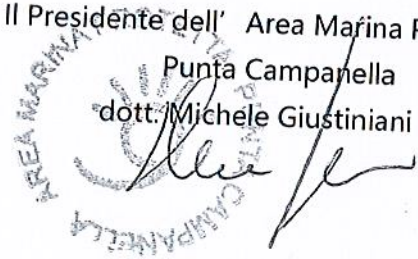 Il Presidente dell' Area Marina
Punta Campanella
dott. Michele Giustiniani
AREA MARINA PROTETTA PUNTA CAMPANELLA